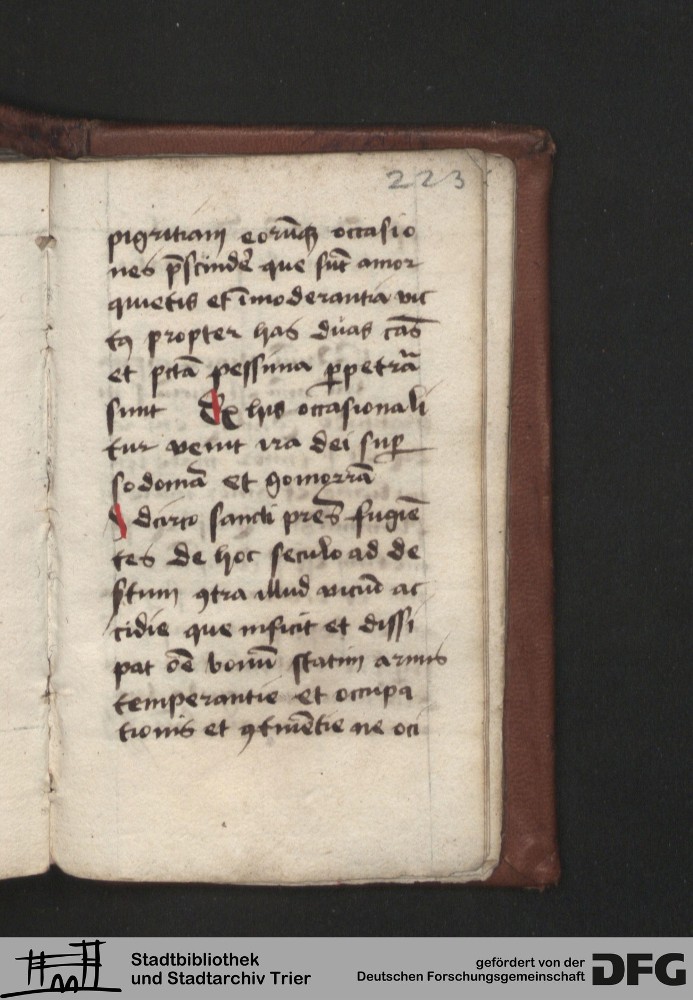 223
pigritiam eorūqꝫ occasio
nes p̄scinder̄ que sūt amor
quietis et īmoderantia vic
tꝰ propter has duas cās
et pctā pessima ꝑpetrā
sunt Ex his occasionali
tur venit ira dei suꝑ
sodomā et gomorrā
Idcirco sancti pres̄ fugiē
tes de hoc seculo ad de
stum ꝯtra illud viciū ac
cidie que inficit et dissi
pat oē bonū statim armis
temperantie et occupa
tionis et ꝯtinētie ne oci
Stadtbibliothek
und Stadtarchiv Trier
gefördert von der
Deutschen Forschungsgemeinschaft
DFG